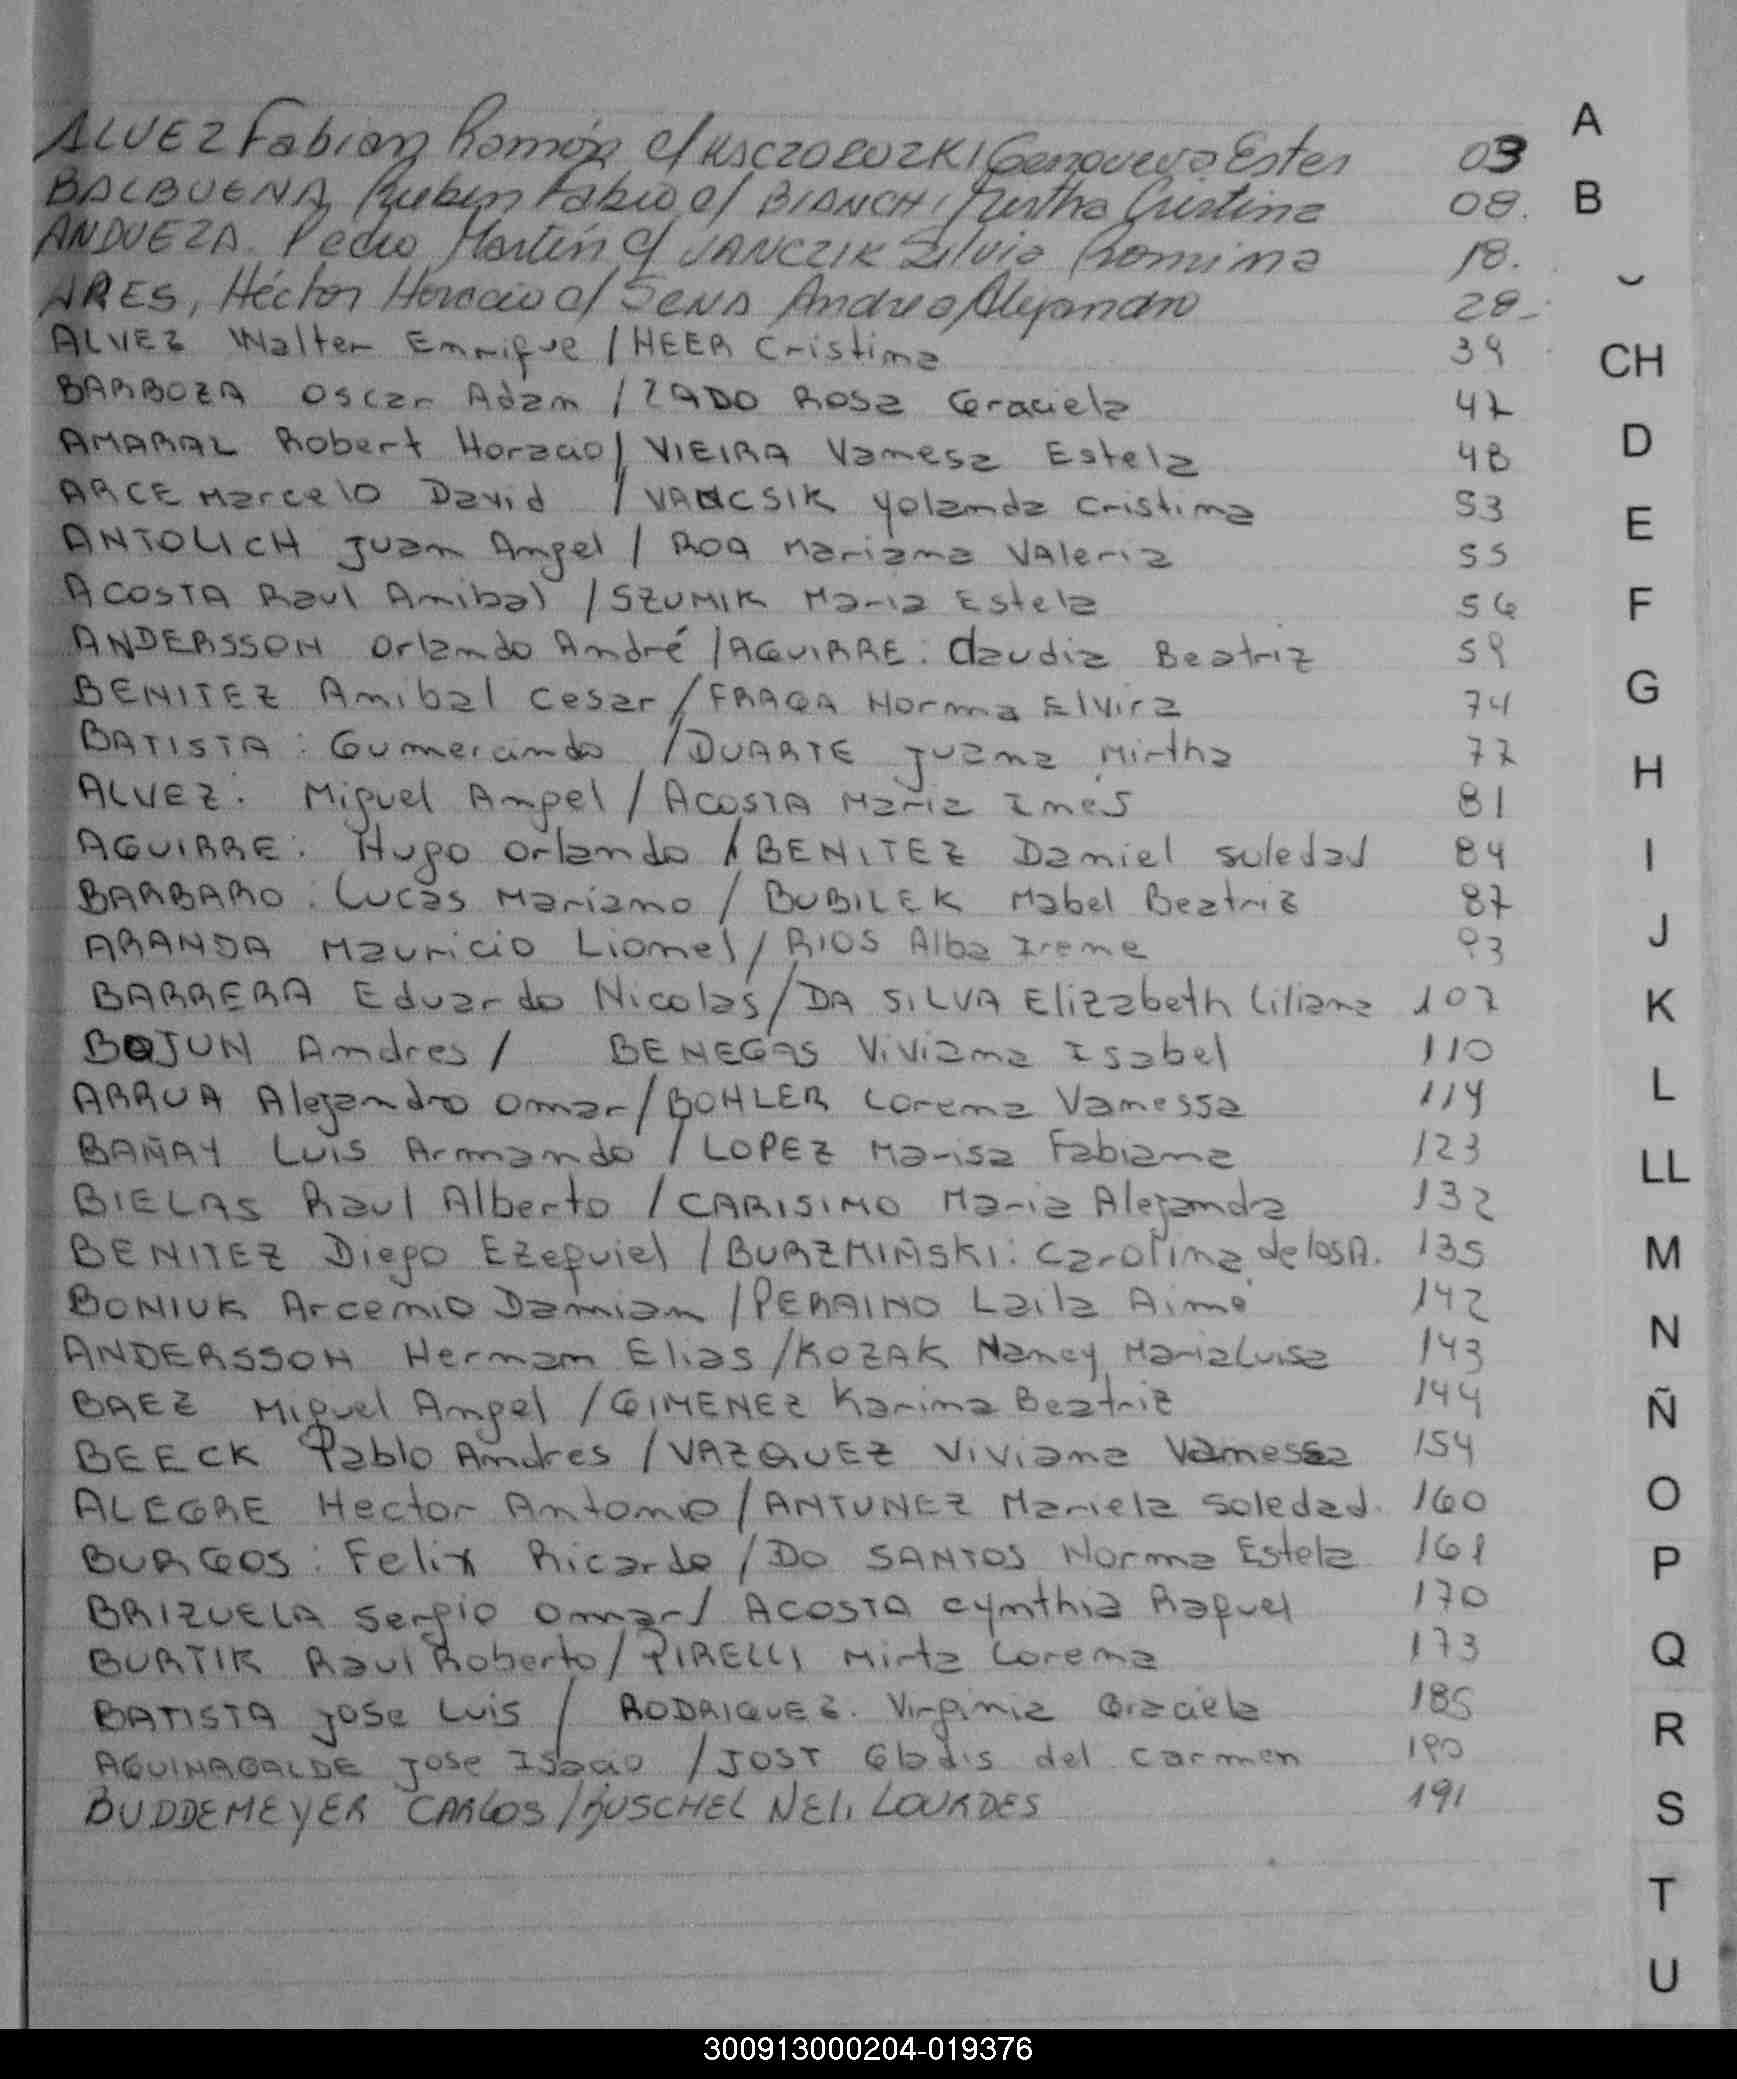 ALVEZ Fabian Ramón c/ Genoveva Ester 03
BALBUENA Ruben Fabio c/ BIANCHI Mirtha Cristina 08.
ANDUEZA Pedro Martín c/ JANCZIK Silvia Romina 18.
ARES, Héctor Horacio c/ SENA Andrea Alejandra 28-
ALVEZ Walter Enrique / HEER Cristina 39
BARBOZA Oscar Adan / ZADO Rosa Graciela 47
AMARAL Robert Horacio / VIEIRA Vanesa Estela 48
ARCE Marcelo David / Yolanda Cristina 53
ANTOLICH Juan Angel / ROA Mariana Valeria 55
ACOSTA Raul Anibal / SZUMIK Maria Estela 56
ANDERSSON Orlando André / AGUIRRE: Claudia Beatriz 59
BENITEZ Anibal Cesar / FRAGA Norma Elvira 74
BATISTA: Gumercindo / DUARTE Juana Mirtha 77
ALVEZ: Miguel Angel / ACOSTA Maria Inés 81
AGUIRRE: Hugo Orlando / BENITEZ Daniel Suledad 84
BARBARO: Lucas Mariano / BUBILEK Mabel Beatriz 87
ARANDA Mauricio Lionel / RIOS Alba Irene 93
BARRERA Eduardo Nicolas / DA SILVA Elizabeth Liliana 107
BOJUN Andres / BENEGAS Viviana Isabel 110
ARRUA Alejandro Omar / BOHLER Lorena Vanessa 114
BAÑAY Luis Armando / LOPEZ Marisa Fabiana 123
BIELAS Raul Alberto / CARISIMO Maria Alejandra 132
BENITEZ Diego Ezequiel / BURZMIÑSKI: Carolina de los A. 135
BONIUK Arcenio Damian / PERAINO Laila Aimé 142
ANDERSSON Hernan Elias / KOZAK Nancy Maria Luisa 143
BAEZ Miguel Angel / GIMENEZ Karina Beatriz 144
BEECK Pablo Andres / VAZQUEZ Viviana Vanessa 154
ALEGRE Hector Antonio / ANTUNEZ Mariela Soledad. 160
BURGOS: Felix Ricardo / DO SANTOS Norma Estela 161
BRIZUELA Sergio Omar / ACOSTA Cynthia Raquel 170
BURTIK Raul Roberto / PIRELLI Mirta Lorena 173
BATISTA Jose Luis / RODRIGUEZ. Virginia Graciela 185
AGUINAGALDE Jose Isacio / JOST Gladis del Carmen 190
BUDDEMEYER CARLOS / BUSCHEL NELI LOURDES 191
A
B
CH
D
E
F
G
H
I
J
K
L
LL
M
N
Ñ
O
P
Q
R
S
T
U
300913000204-019376